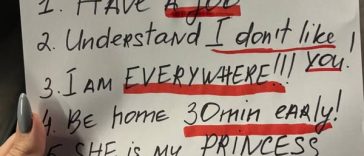 1. HAVE A JOB
2. Understand I don't like YOU!
3. I AM EVERYWHERE!!!
4. BE HOME 30min EARLY!
5. SHE is MY PRINCESS